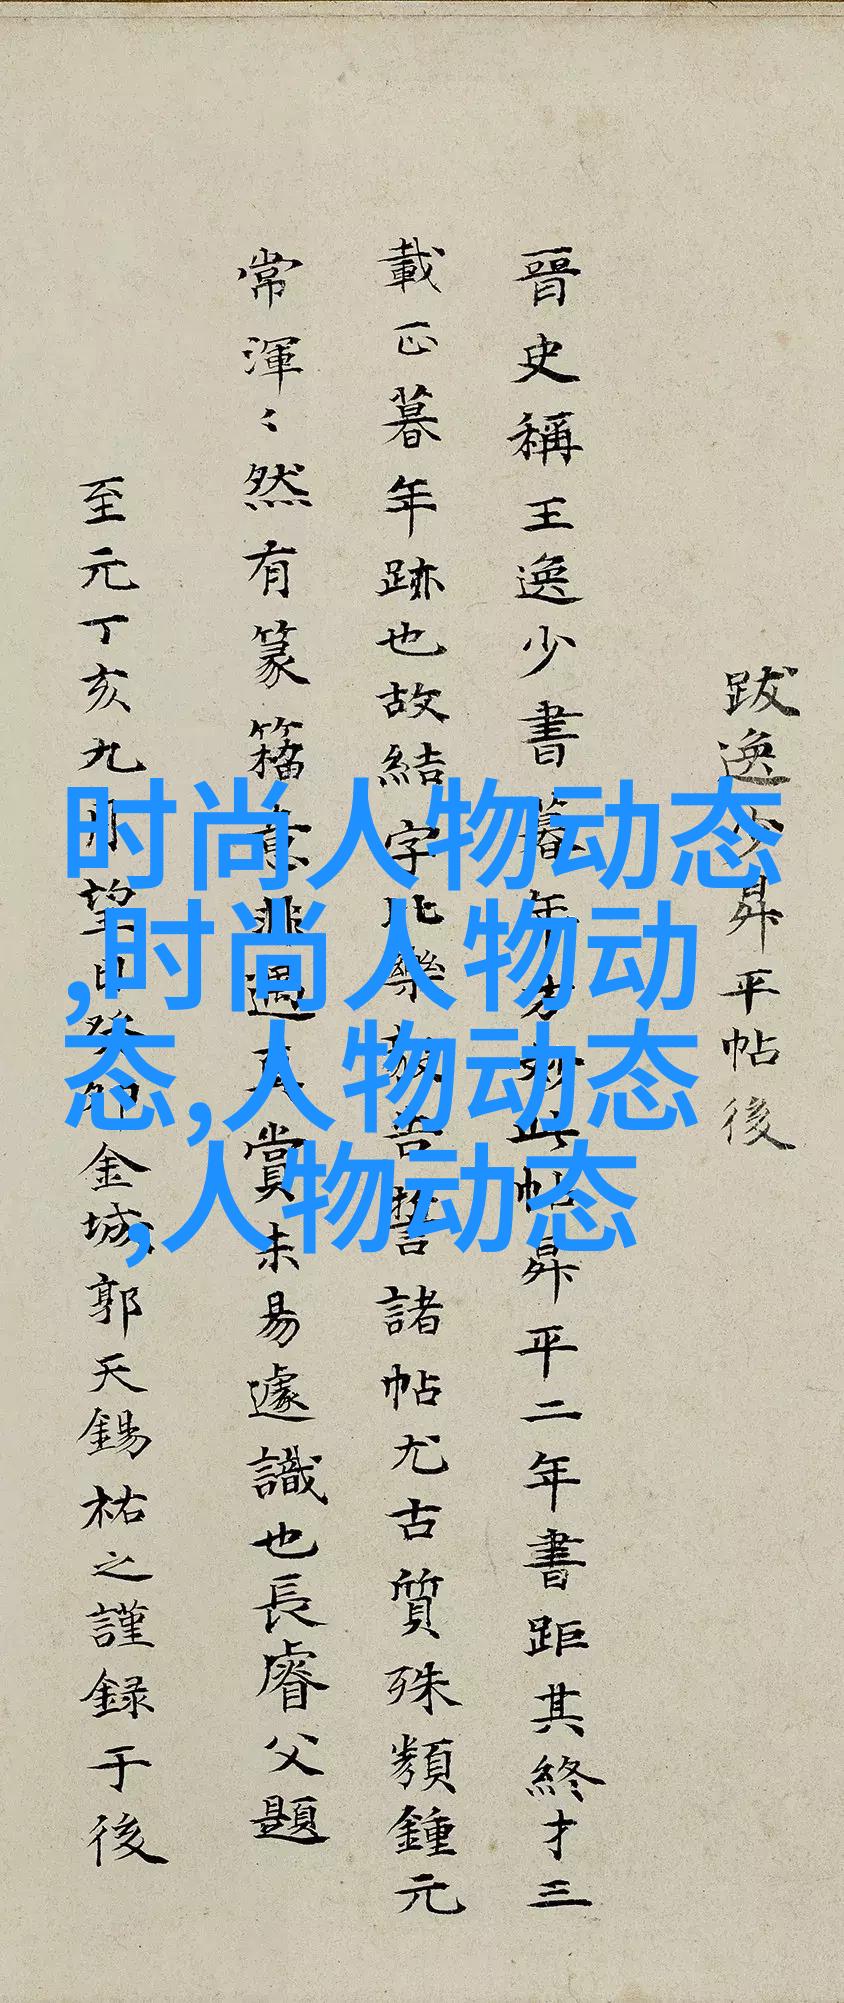 跋逸少昇平帖後
晉史稱王逸少書暮年方妙此帖昇平二年書距其終才三
載正暮年跡也故結字比樂毅告誓諸帖尤古質殊類鍾元
常渾〻然有篆籀意非遇真賞未易遽識也長睿父題
至元丁亥九月望日癸卯金城郭天錫祐之謹録于後
时尚人物动态
,时尚人物动
态,人物动态
,人物动态